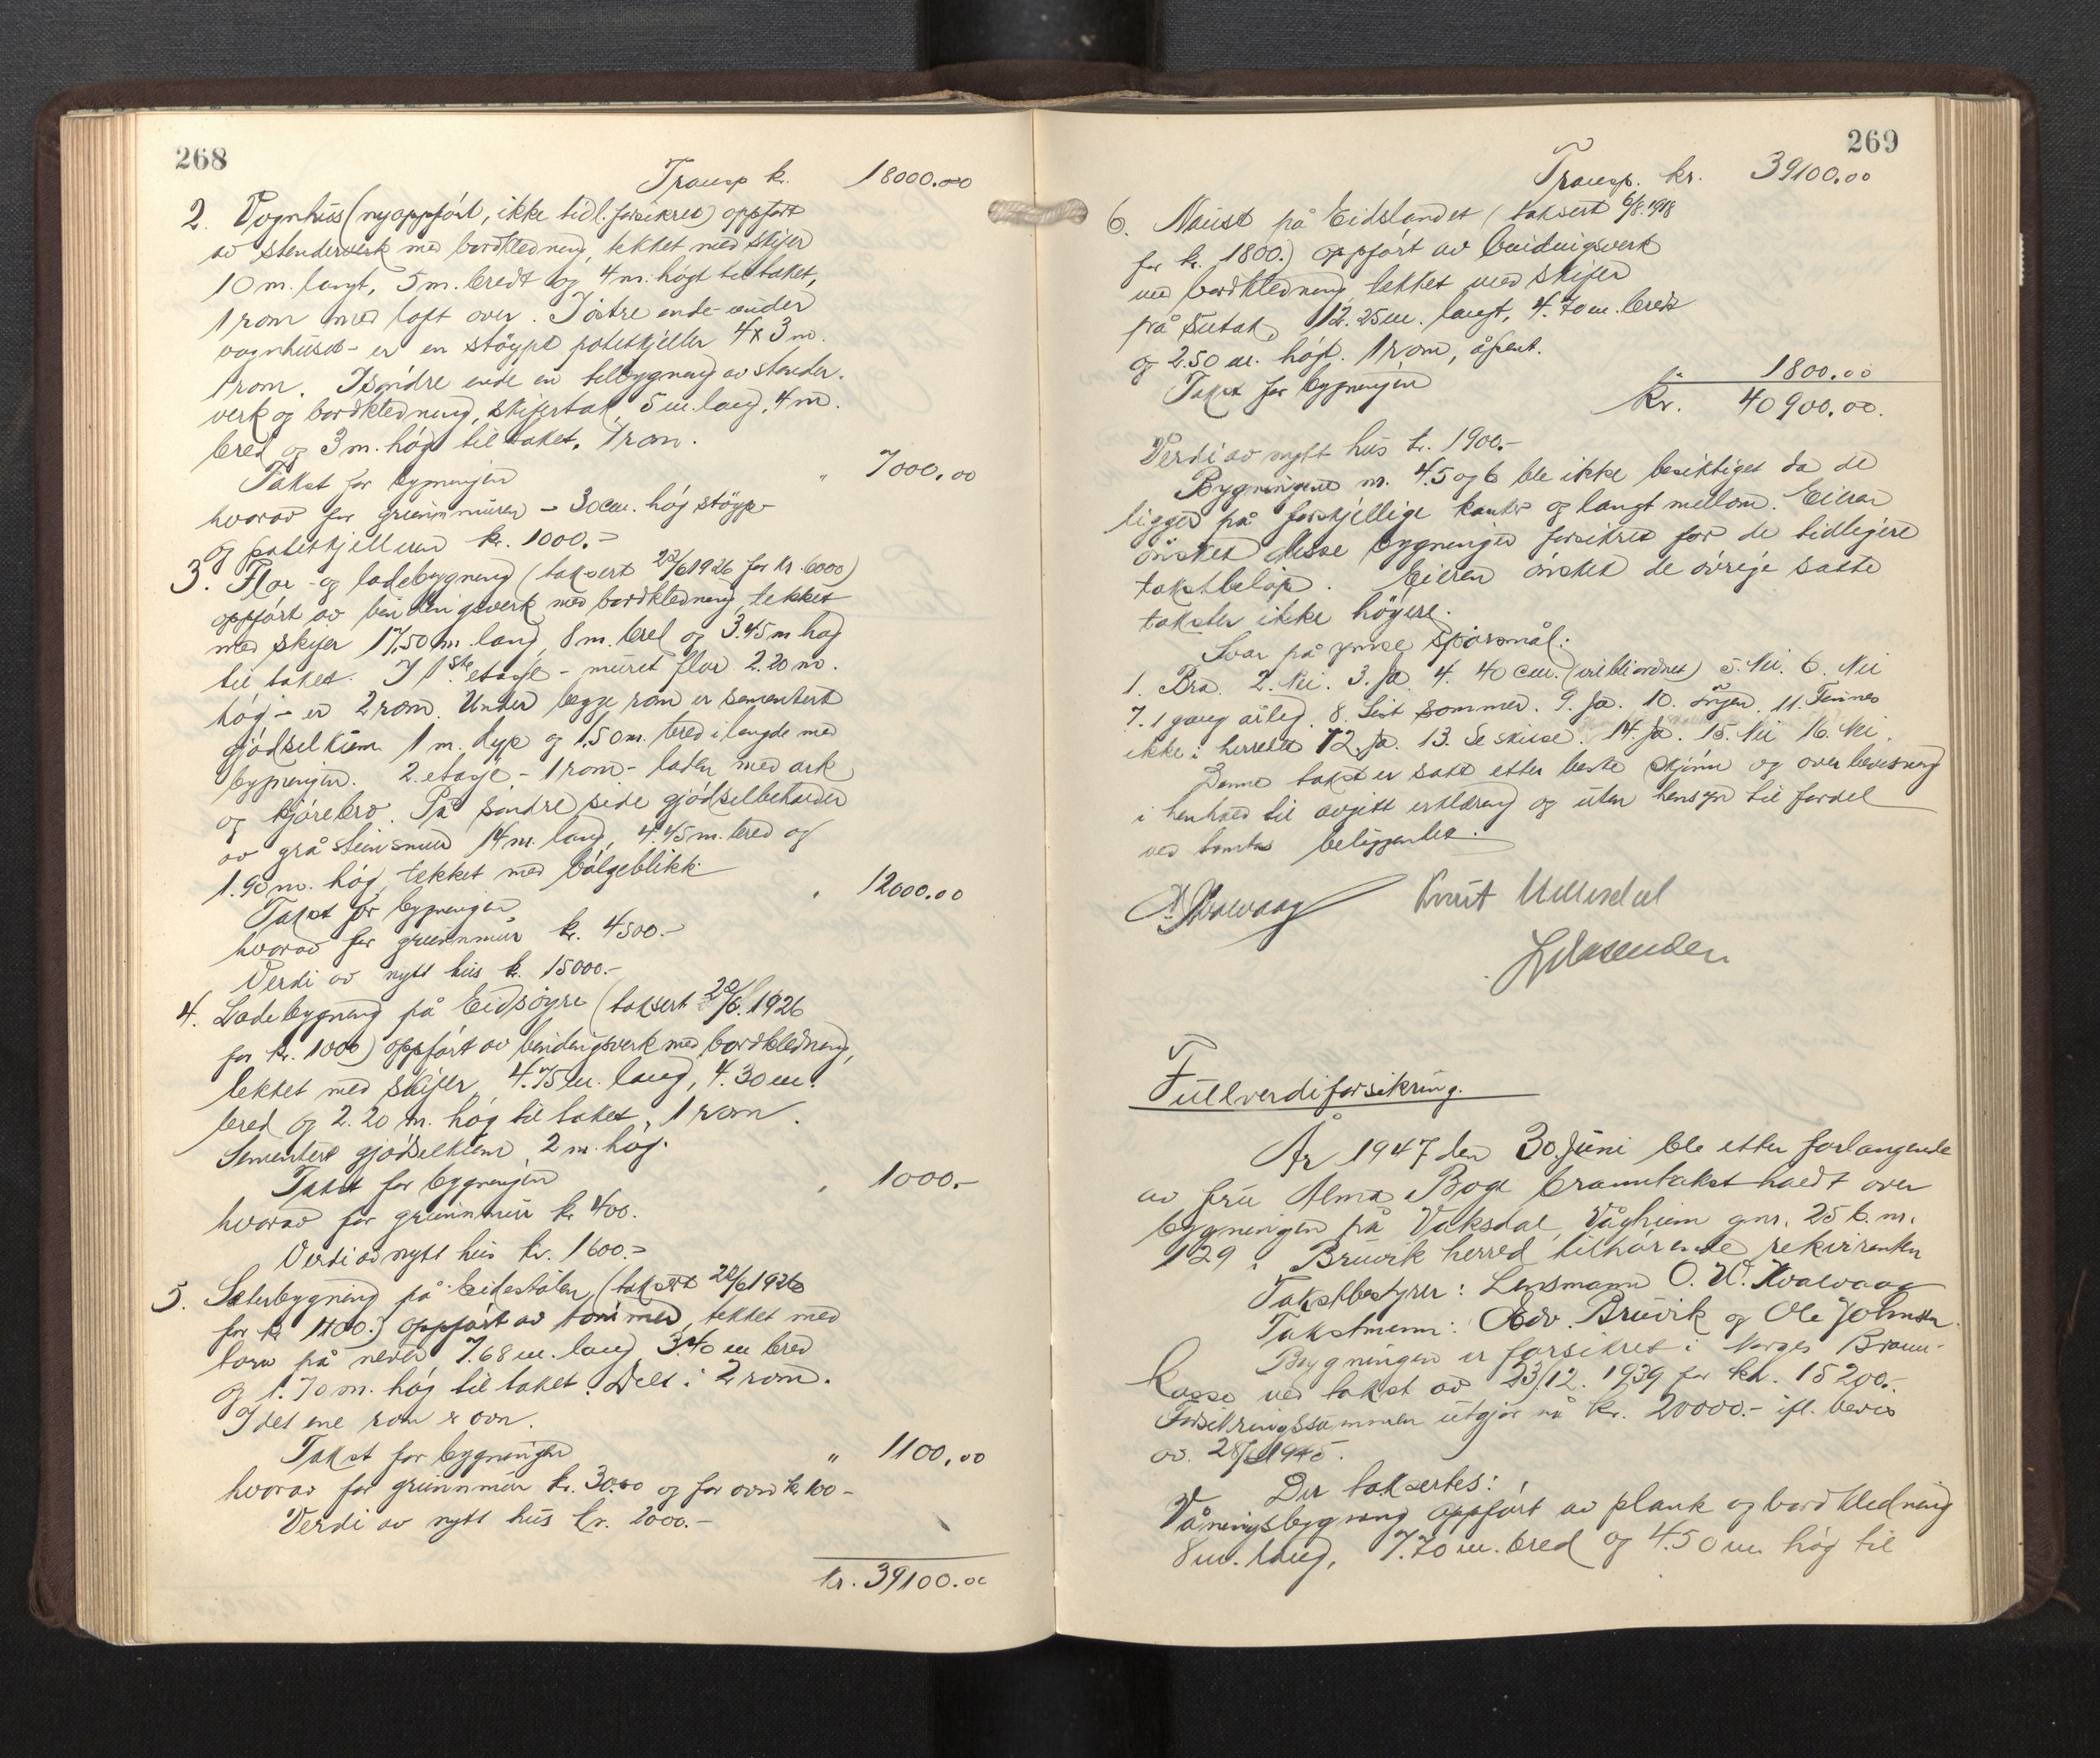 268
Transp kr. 18000.00
2. Vognhus (nyoppført, ikke tidl. forsikret) oppført
av stenderverk med bordkledning, tekket med skifer
10 m. langt, 5 m. bredt og 4 m. högt til taket,
1 rom med loft over. I östre ende under
vognhuset er en stöypt potetkjeller 4 x 3 m.
1 rom. I söndre ende en tilbygning av stender-
verk og bordkledning, skifertak, 5 m. lang, 4 m.
bred og 3 m. hög til taket. 1 rom.
Takst for bygningen " 7000.00
hvorav for grunnmuren - 30 cm. høg støyp -
og potetkjelleren kr. 1000.-
3. Flor- og ladebygning (taksert 1926 for kr. 6000)
oppfört av bindingsverk med bordkledning, tekket
med skifer 17,50 m. lang, 8 m. bred og 3.45 m høg
til taket. I 1ste etasje - muret flor 2.20 m.
høg - er 2 rom. Under begge rom er sementert
gjödselkum 1 m. dyp og 1,50 m. bred i lengde med
bygningen. 2. etasje - 1 rom - laden med ark
og kjörebro. På söndre side gjödselbeholder
av grå steinsmur 14 m. lang, 4.45 m. bred og
1.90 m. hög, tekket med bölgeblikk
Takst for bygningen " 12000.00
hvorav for grunnmur kr. 4500.-
Verdi av nytt hus kr. 15000.-
4. Ladebygning på Eidsöyra (taksert 1926
for kr. 1000) oppfört av bindingsverk med bordkledning,
tekket med skifer, 4.75 m. lang, 4.30 m.
bred og 2.20 m. hög til taket, 1 rom.
Sementert gjödselkum 2 m. hög.
Takst for bygningen " 1000.-
hvorav for grunnmur kr 400.
Verdi av nytt hus kr. 1600.-
5. Seterbygning på Eidestölen (taksert 1926
for kr 1100.) oppfört av tömmer, tekket med
torv på never 7.68 m. lang 3.40 m bred
og 1.70 m. hög til taket. Delt i 2 rom.
I det ene rom er ovn.
Takst for bygningen " 1100.00
hvorav for grunnmur kr. 30.00 og for ovn kr 100 -
Verdi av nytt hus kr. 2000.-
kr. 39100.00
269
Transp. kr. 39100.00
6. Naust på Eidslandet (taksert 6/8.1918
for kr. 1800.) oppfört av bindingsverk
med bordkledning tekket med skifer
på sutak, 12.25 m. langt, 4.70 m. bredt
og 2.50 m. högt. 1 rom, åpent.
Takst for bygningen " 1800.00
Kr. 40900.00.
Verdi av nytt hus kr. 1900.-
Bygningene nr. 4.5 og 6 ble ikke besiktiget da de
ligger på forskjellige kanter og langt mellom. Eieren
önsket disse bygninger forsikret for de tidligere
takstbelöp. Eieren önsket de övrige satte
takster ikke höyere.
Svar på spörsmål:
1. Bra. 2. Nei. 3. Ja. 4. 40 cm. 5. Nei. 6. Nei
7. 1 gang årleg. 8. Sist sommer. 9. Ja. 10. Ingen. 11. Finnes
ikke i herredet 12. Ja. 13. Se skisse. 14. Ja. 15. Nei 16. Nei.
Denne takst er satt etter beste skjönn og overbevisning
i henhold til avgitt erklæring og uten hensyn til fordel
ved tomtas beliggenhet.
Knut
Fullverdiforsikring.
År 1947 den 30. Juni ble etter forlangende
av fru Alma Boge branntakst holdt over
bygningen på Vaksdal, Vågheim gnr. 25 b. nr.
129 i Bruvik herred tilhörende rekvirenten
Takstbestyrer: Lensmann O. W. Kvalvaag
Takstmenn: Edv. Bruvik og Ole Johnsen.
Bygningen er forsikret i Norges Brann-
kasse ved takst av 23/12. 1939 for kr. 15200.-
Forsikringssummen utgjör nå kr. 20000.- ifl. bevis
av 1945.
Der taksertes:
Våningsbygning oppfört av plank og bordkledning
8 m. lang, 7.70 m. bred og 4.50 m hög til